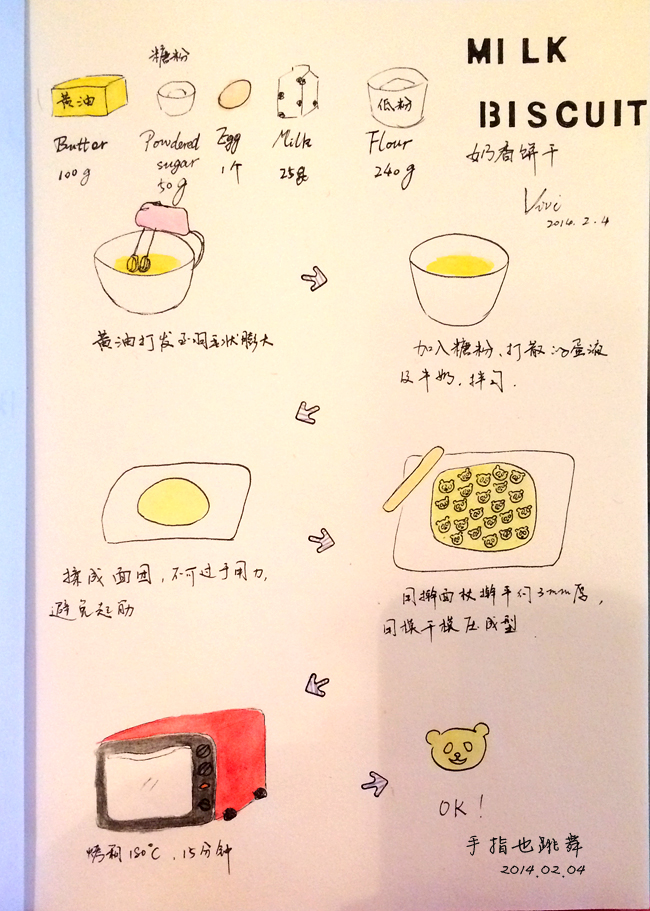 MILK
BISCUIT
奶香饼干
Vivi
2014.2.4
糖粉
黄油
低粉
Butter
100g
Powdered
sugar
50g
Egg
1个
Milk
25g
Flour
240g
黄油打发至羽毛状膨大
加入糖粉,打散的蛋液
及牛奶,拌匀.
揉成面团,不可过于用力,
避免起筋
用擀面杖擀平约3mm厚,
用模干模压成型
烤箱180℃,15分钟
OK!
手指也跳舞
2014.02.04